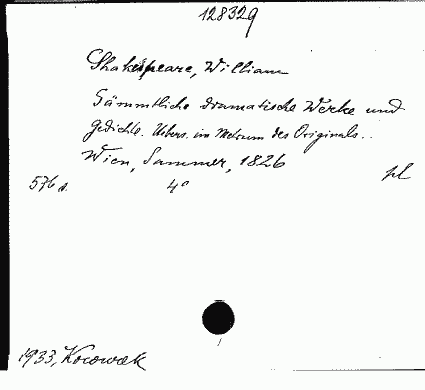 128329
Shakespeare, William
Sämmtliche dramatische Werke und
Gedichte. Uebers. im Metrum des Originals..
Wien, Sammer, 1826
pl
576 s. 4°
1933, Kocowak